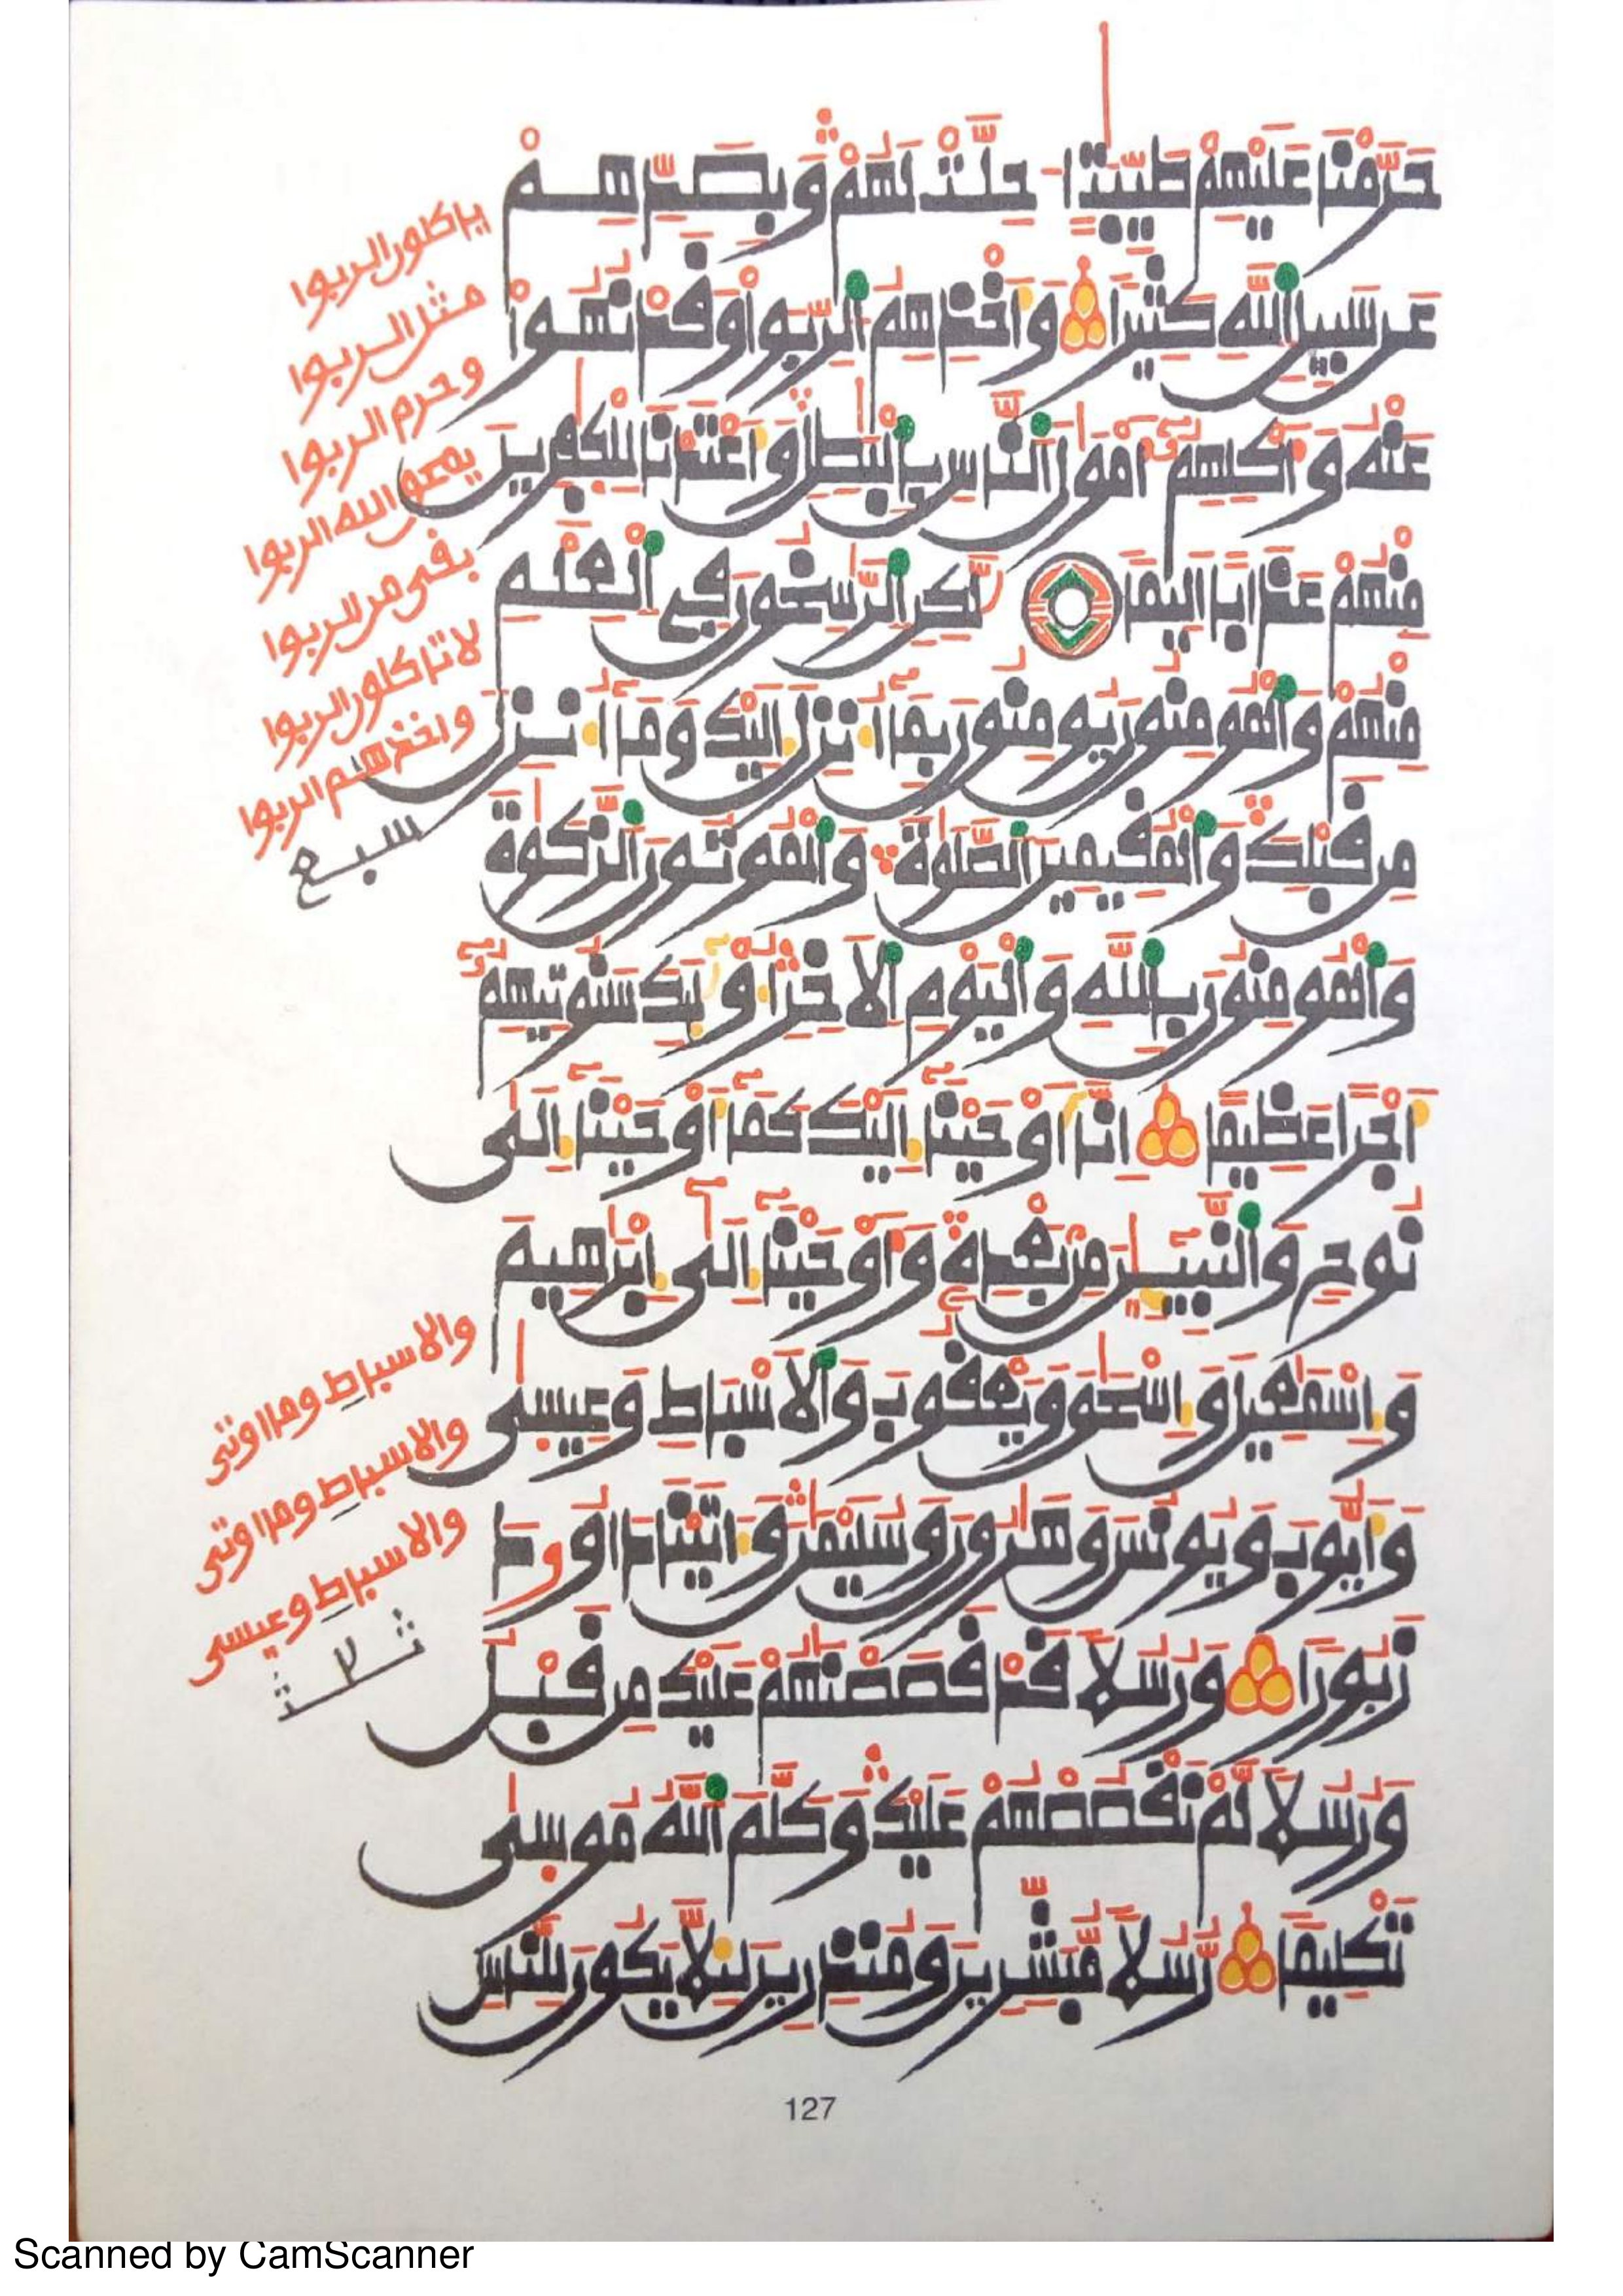 حَرَّمْنَا عَلَيْهِمْ طَيِّبَٰتٍ اُحِلَّتْ لَهُمْ وَبِصَدِّهِمْ
عَن سَبِيلِ اِ۬للَّهِ كَثِيراً وَأَخْذِهِمُ اُ۬لرِّبَوٰاْ وَقَدْ نُهُواْ
عَنْهُ وَأَكْلِهِمُۥٓ أَمْوَٰلَ اَ۬لنَّاسِ بِالْبَٰطِلِ وَأَعْتَدْنَا لِلْكٰفِرِينَ
مِنْهُمْ عَذَاباً اَلِيماً لَّٰكِنِ اِ۬لرَّٰسِخُونَ فِي اِ۬لْعِلْمِ
مِنْهُمْ وَالْمُومِنُونَ يُومِنُونَ بِمَآ أُنزِلَ إِلَيْكَ وَمَآ أُنزِلَ
مِن قَبْلِكَ وَالْمُقِيمِينَ اَ۬لصَّلَوٰةَ وَالْمُوتُونَ اَ۬لزَّكَوٰةَ
وَالْمُومِنُونَ بِاللَّهِ وَالْيَوْمِ اِ۬لَاخِرِ أُوْلَٰٓئِكَ سَنُوتِيهِمُۥٓ
أَجْراً عَظِيماً إِنَّآ أَوْحَيْنَآ إِلَيْكَ كَمَآ أَوْحَيْنَآ إِلَىٰ
نُوحٍ وَالنَّبِيٓـِٕينَ مِنۢ بَعْدِهِۦ وَأَوْحَيْنَآ إِلَىٰٓ إِبْرَٰهِيمَ
وَإِسْمَٰعِيلَ وَإِسْحَٰقَ وَيَعْقُوبَ وَالَاسْبَاطِ وَعِيسَىٰ
وَأَيُّوبَ وَيُونُسَ وَهَٰرُونَ وَسُلَيْمَٰنَ وَءَاتَيْنَا دَاوُۥدَ
زَبُوراً وَرُسُلاً قَدْ قَصَصْنَٰهُمْ عَلَيْكَ مِن قَبْلُ
وَرُسُلاً لَّمْ نَقْصُصْهُمْ عَلَيْكَ وَكَلَّمَ اَ۬للَّهُ مُوسَىٰ
تَكْلِيماً رُّسُلاً مُّبَشِّرِينَ وَمُنذِرِينَ لِئَلَّا يَكُونَ لِلنَّاسِ
ياكلون الربوا
مثل الربوا
وحرم الربوا
يمحق الله الربوا
بقى من الربوا
لا تاكلوا الربوا
واخذهم الربوا
سبع
والاسباط وما اوتى
والاسباط وما اوتى
والاسباط وعيسى
127
Scanned by CamScanner